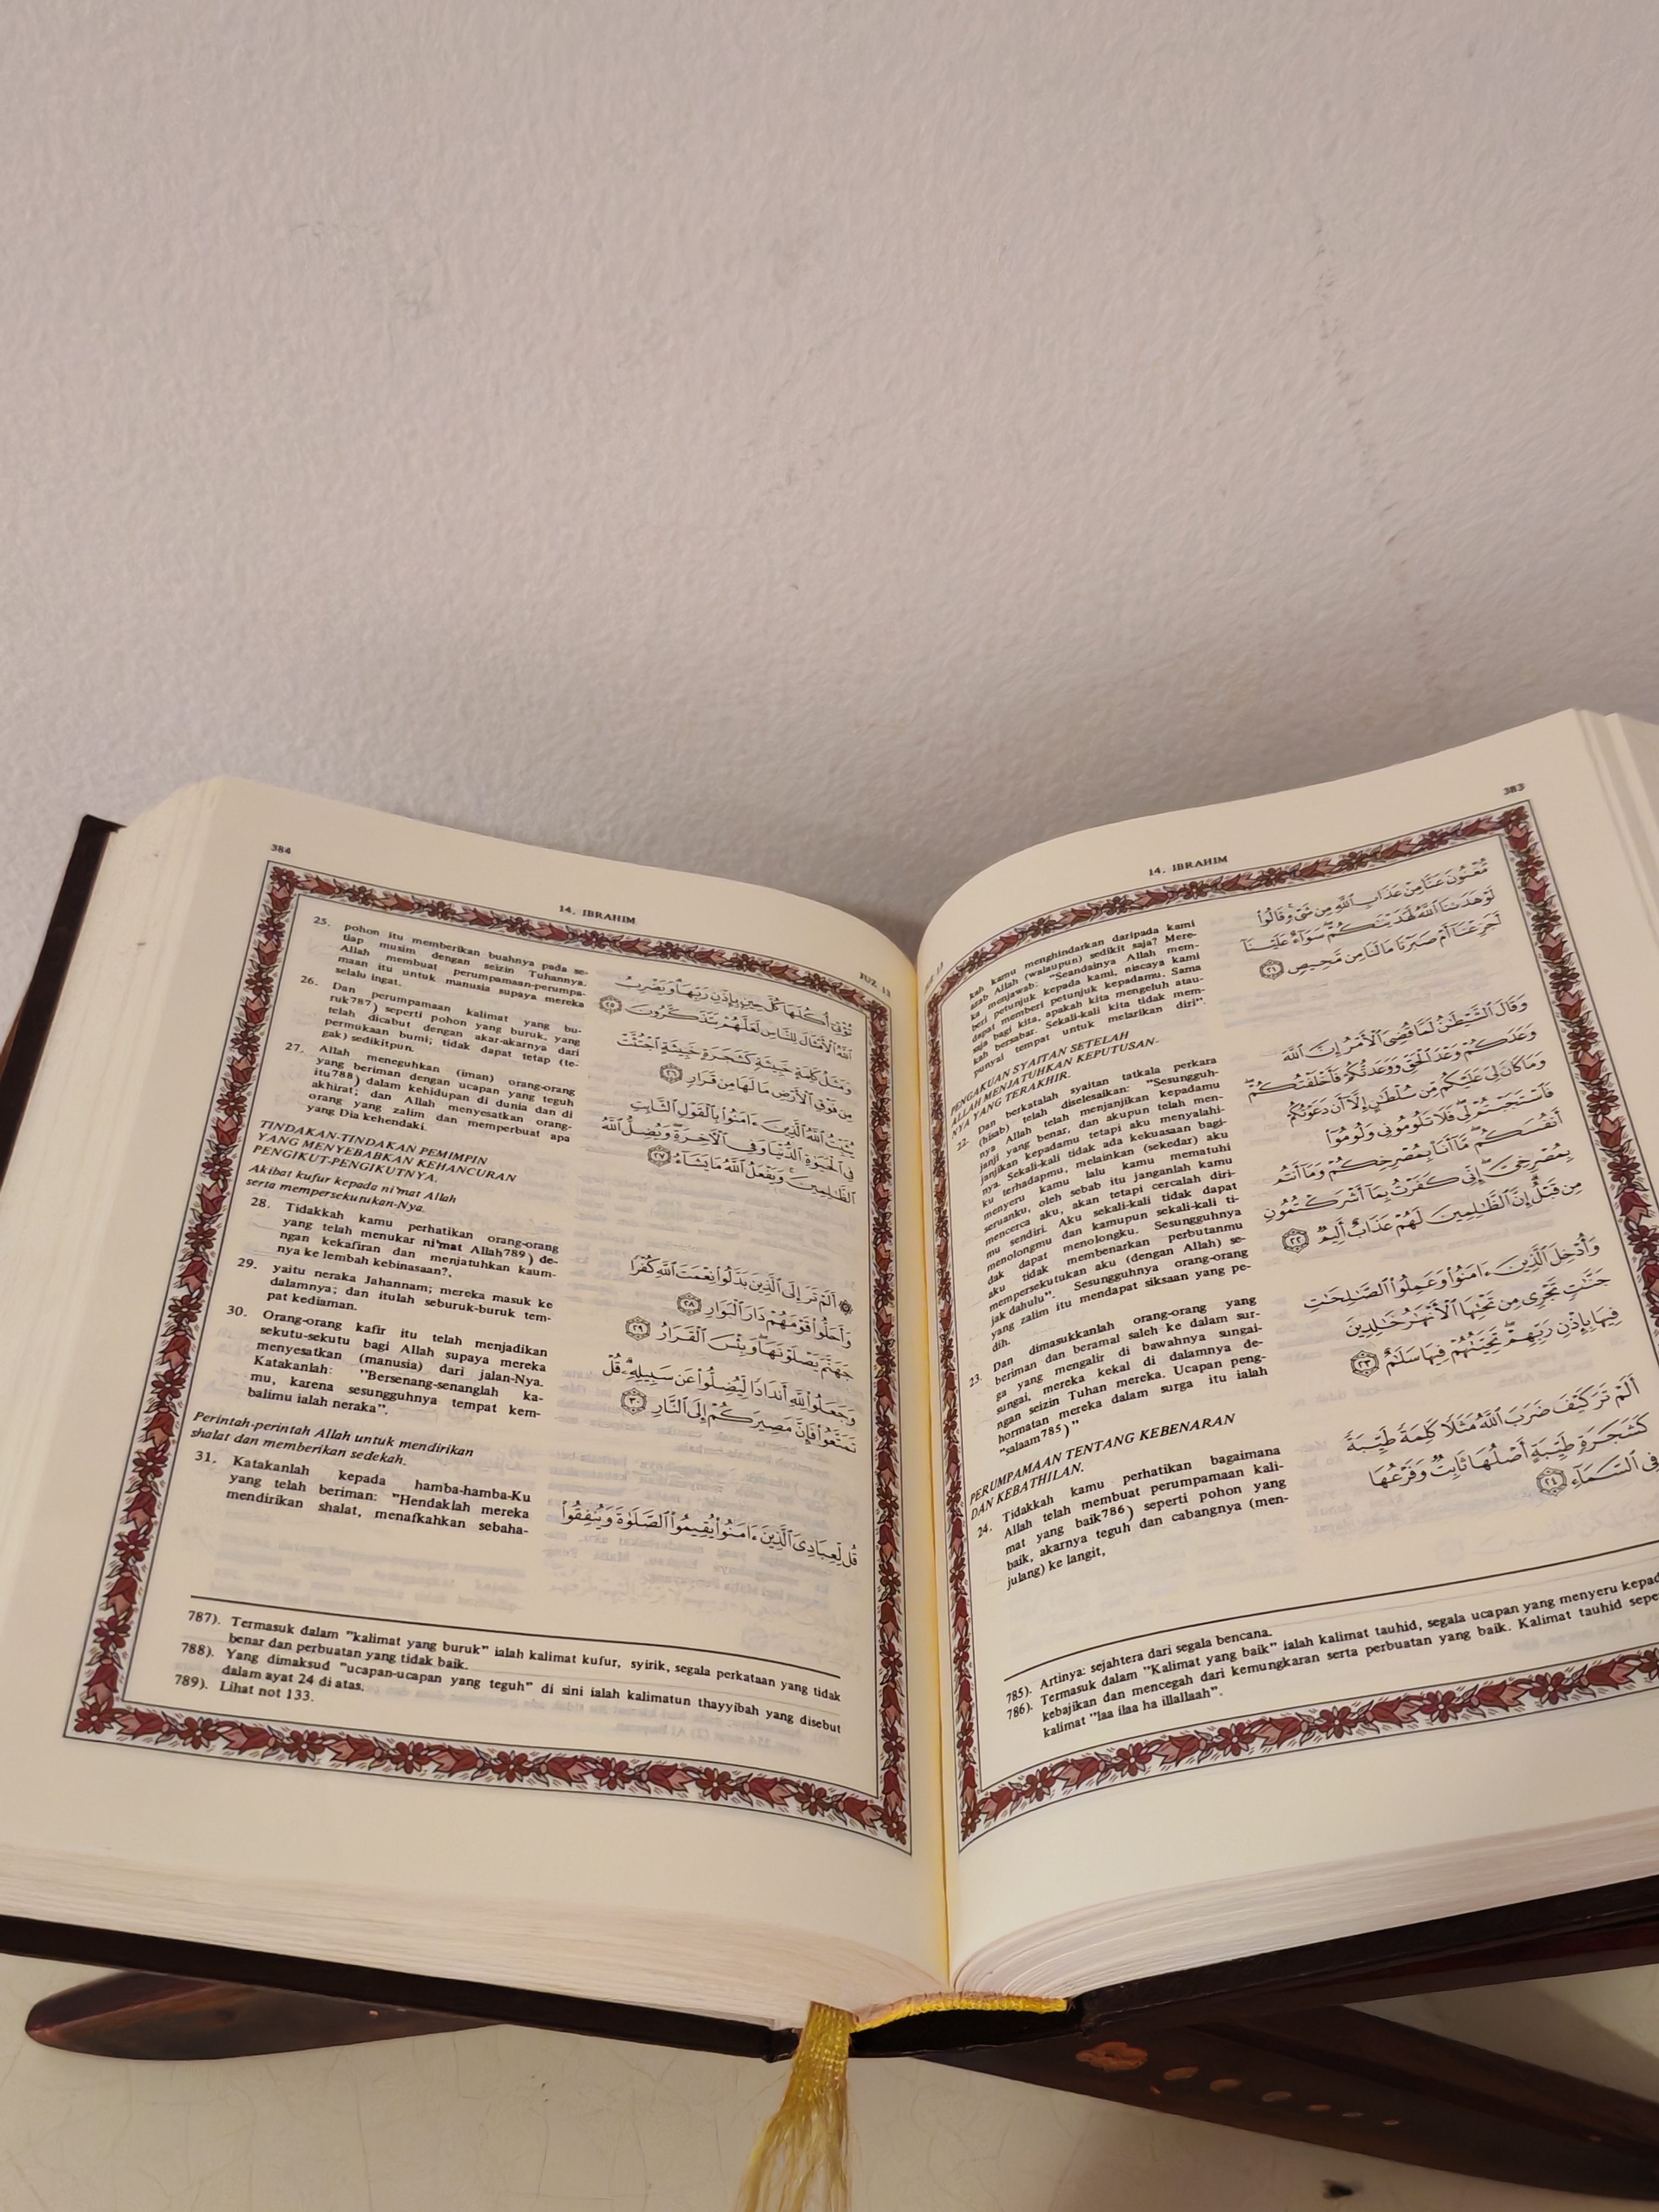 383
14. IBRAHIM
kah kamu menghindarkan daripada kami
azab Allah (walaupun) sedikit saja? Mere-
ka menjawab: "Seandainya Allah mem-
beri petunjuk kepada kami, niscaya kami
dapat memberi petunjuk kepadamu. Sama
saja bagi kita, apakah kita mengeluh atau-
kah bersabar. Sekali-kali kita tidak mem-
punyai tempat untuk melarikan diri".
PENGAKUAN SYAITAN SETELAH
ALLAH MENJATUHKAN KEPUTUSAN-
NYA YANG TERAKHIR.
22. Dan berkatalah syaitan tatkala perkara
(hisab) telah diselesaikan: "Sesungguh-
nya Allah telah menjanjikan kepadamu
janji yang benar, dan akupun telah men-
janjikan kepadamu tetapi aku menyalahi-
nya. Sekali-kali tidak ada kekuasaan bagi-
ku terhadapmu, melainkan (sekedar) aku
menyeru kamu lalu kamu mematuhi
seruanku, oleh sebab itu janganlah kamu
mencerca aku, akan tetapi cercalah diri-
mu sendiri. Aku sekali-kali tidak dapat
menolongmu dan kamupun sekali-kali ti-
dak dapat menolongku. Sesungguhnya
aku tidak membenarkan perbutanmu
mempersekutukan aku (dengan Allah) se-
jak dahulu". Sesungguhnya orang-orang
yang zalim itu mendapat siksaan yang pe-
dih.
23. Dan dimasukkanlah orang-orang yang
beriman dan beramal saleh ke dalam sur-
ga yang mengalir di bawahnya sungai-
sungai, mereka kekal di dalamnya de-
ngan seizin Tuhan mereka. Ucapan peng-
hormatan mereka dalam surga itu ialah
"salaam785)"
PERUMPAMAAN TENTANG KEBENARAN
DAN KEBATHILAN.
24. Tidakkah kamu perhatikan bagaimana
Allah telah membuat perumpamaan kali-
mat yang baik786) seperti pohon yang
baik, akarnya teguh dan cabangnya (men-
julang) ke langit,
مُّغْنُونَ عَنَّا مِنْ عَذَابِ ٱللَّهِ مِن شَىْءٍ ۚ قَالُوا۟
لَوْ هَدَىٰنَا ٱللَّهُ لَهَدَيْنَٰكُمْ ۖ سَوَآءٌ عَلَيْنَآ
أَجَزِعْنَآ أَمْ صَبَرْنَا مَا لَنَا مِن مَّحِيصٍ ٢١
وَقَالَ ٱلشَّيْطَٰنُ لَمَّا قُضِىَ ٱلْأَمْرُ إِنَّ ٱللَّهَ
وَعَدَكُمْ وَعْدَ ٱلْحَقِّ وَوَعَدتُّكُمْ فَأَخْلَفْتُكُمْ ۖ
وَمَا كَانَ لِىَ عَلَيْكُم مِّن سُلْطَٰنٍ إِلَّآ أَن دَعَوْتُكُمْ
فَٱسْتَجَبْتُمْ لِى ۖ فَلَا تَلُومُونِى وَلُومُوٓا۟
أَنفُسَكُم ۖ مَّآ أَنَا۠ بِمُصْرِخِكُمْ وَمَآ أَنتُم
بِمُصْرِخِىَّ ۖ إِنِّى كَفَرْتُ بِمَآ أَشْرَكْتُمُونِ
مِن قَبْلُ ۗ إِنَّ ٱلظَّٰلِمِينَ لَهُمْ عَذَابٌ أَلِيمٌ ٢٢
وَأُدْخِلَ ٱلَّذِينَ ءَامَنُوا۟ وَعَمِلُوا۟ ٱلصَّٰلِحَٰتِ
جَنَّٰتٍ تَجْرِى مِن تَحْتِهَا ٱلْأَنْهَٰرُ خَٰلِدِينَ
فِيهَا بِإِذْنِ رَبِّهِمْ ۖ تَحِيَّتُهُمْ فِيهَا سَلَٰمٌ ٢٣
أَلَمْ تَرَ كَيْفَ ضَرَبَ ٱللَّهُ مَثَلًا كَلِمَةً طَيِّبَةً
كَشَجَرَةٍ طَيِّبَةٍ أَصْلُهَا ثَابِتٌ وَفَرْعُهَا
فِى ٱلسَّمَآءِ ٢٤
785). Artinya: sejahtera dari segala bencana.
786). Termasuk dalam "Kalimat yang baik" ialah kalimat tauhid, segala ucapan yang menyeru
kebajikan dan mencegah dari kemungkaran serta perbuatan yang baik. Kalimat tauhid
kalimat "laa ilaa ha illallaah".
384
14. IBRAHIM
JUZ 13
25. pohon itu memberikan buahnya pada se-
tiap musim dengan seizin Tuhannya.
Allah membuat perumpamaan-perumpa-
maan itu untuk manusia supaya mereka
selalu ingat.
26. Dan perumpamaan kalimat yang bu-
ruk787) seperti pohon yang buruk, yang
telah dicabut dengan akar-akarnya dari
permukaan bumi; tidak dapat tetap (te-
gak) sedikitpun.
27. Allah meneguhkan (iman) orang-orang
yang beriman dengan ucapan yang teguh
itu788) dalam kehidupan di dunia dan di
akhirat; dan Allah menyesatkan orang-
orang yang zalim dan memperbuat apa
yang Dia kehendaki.
TINDAKAN-TINDAKAN PEMIMPIN
YANG MENYEBABKAN KEHANCURAN
PENGIKUT-PENGIKUTNYA.
Akibat kufur kepada ni'mat Allah
serta mempersekutukan-Nya.
28. Tidakkah kamu perhatikan orang-orang
yang telah menukar ni'mat Allah789) de-
ngan kekafiran dan menjatuhkan kaum-
nya ke lembah kebinasaan?,
29. yaitu neraka Jahannam; mereka masuk ke
dalamnya; dan itulah seburuk-buruk tem-
pat kediaman.
30. Orang-orang kafir itu telah menjadikan
sekutu-sekutu bagi Allah supaya mereka
menyesatkan (manusia) dari jalan-Nya.
Katakanlah: "Bersenang-senanglah ka-
mu, karena sesungguhnya tempat kem-
balimu ialah neraka".
Perintah-perintah Allah untuk mendirikan
shalat dan memberikan sedekah.
31. Katakanlah kepada hamba-hamba-Ku
yang telah beriman: "Hendaklah mereka
mendirikan shalat, menafkahkan sebaha-
تُؤْتِىٓ أُكُلَهَا كُلَّ حِينٍۭ بِإِذْنِ رَبِّهَا ۗ وَيَضْرِبُ
ٱللَّهُ ٱلْأَمْثَالَ لِلنَّاسِ لَعَلَّهُمْ يَتَذَكَّرُونَ ٢٥
وَمَثَلُ كَلِمَةٍ خَبِيثَةٍ كَشَجَرَةٍ خَبِيثَةٍ ٱجْتُثَّتْ
مِن فَوْقِ ٱلْأَرْضِ مَا لَهَا مِن قَرَارٍ ٢٦
يُثَبِّتُ ٱللَّهُ ٱلَّذِينَ ءَامَنُوا۟ بِٱلْقَوْلِ ٱلثَّابِتِ
فِى ٱلْحَيَوٰةِ ٱلدُّنْيَا وَفِى ٱلْءَاخِرَةِ ۖ وَيُضِلُّ ٱللَّهُ
ٱلظَّٰلِمِينَ ۚ وَيَفْعَلُ ٱللَّهُ مَا يَشَآءُ ٢٧
۞ أَلَمْ تَرَ إِلَى ٱلَّذِينَ بَدَّلُوا۟ نِعْمَتَ ٱللَّهِ كُفْرًا
وَأَحَلُّوا۟ قَوْمَهُمْ دَارَ ٱلْبَوَارِ ٢٨
جَهَنَّمَ يَصْلَوْنَهَا ۖ وَبِئْسَ ٱلْقَرَارُ ٢٩
وَجَعَلُوا۟ لِلَّهِ أَندَادًا لِّيُضِلُّوا۟ عَن سَبِيلِهِۦ ۗ قُلْ
تَمَتَّعُوا۟ فَإِنَّ مَصِيرَكُمْ إِلَى ٱلنَّارِ ٣٠
قُل لِّعِبَادِىَ ٱلَّذِينَ ءَامَنُوا۟ يُقِيمُوا۟ ٱلصَّلَوٰةَ وَيُنفِقُوا۟
787). Termasuk dalam "kalimat yang buruk" ialah kalimat kufur, syirik, segala perkataan yang tidak
benar dan perbuatan yang tidak baik.
788). Yang dimaksud "ucapan-ucapan yang teguh" di sini ialah kalimatun thayyibah yang disebut
dalam ayat 24 di atas.
789). Lihat not 133.